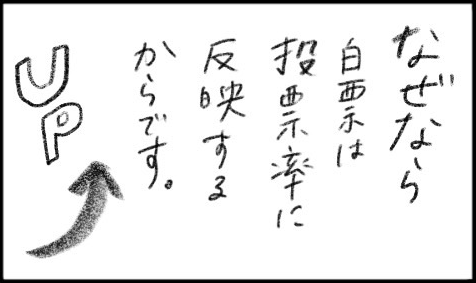 なぜなら
白票は
投票率に
反映する
からです。
UP